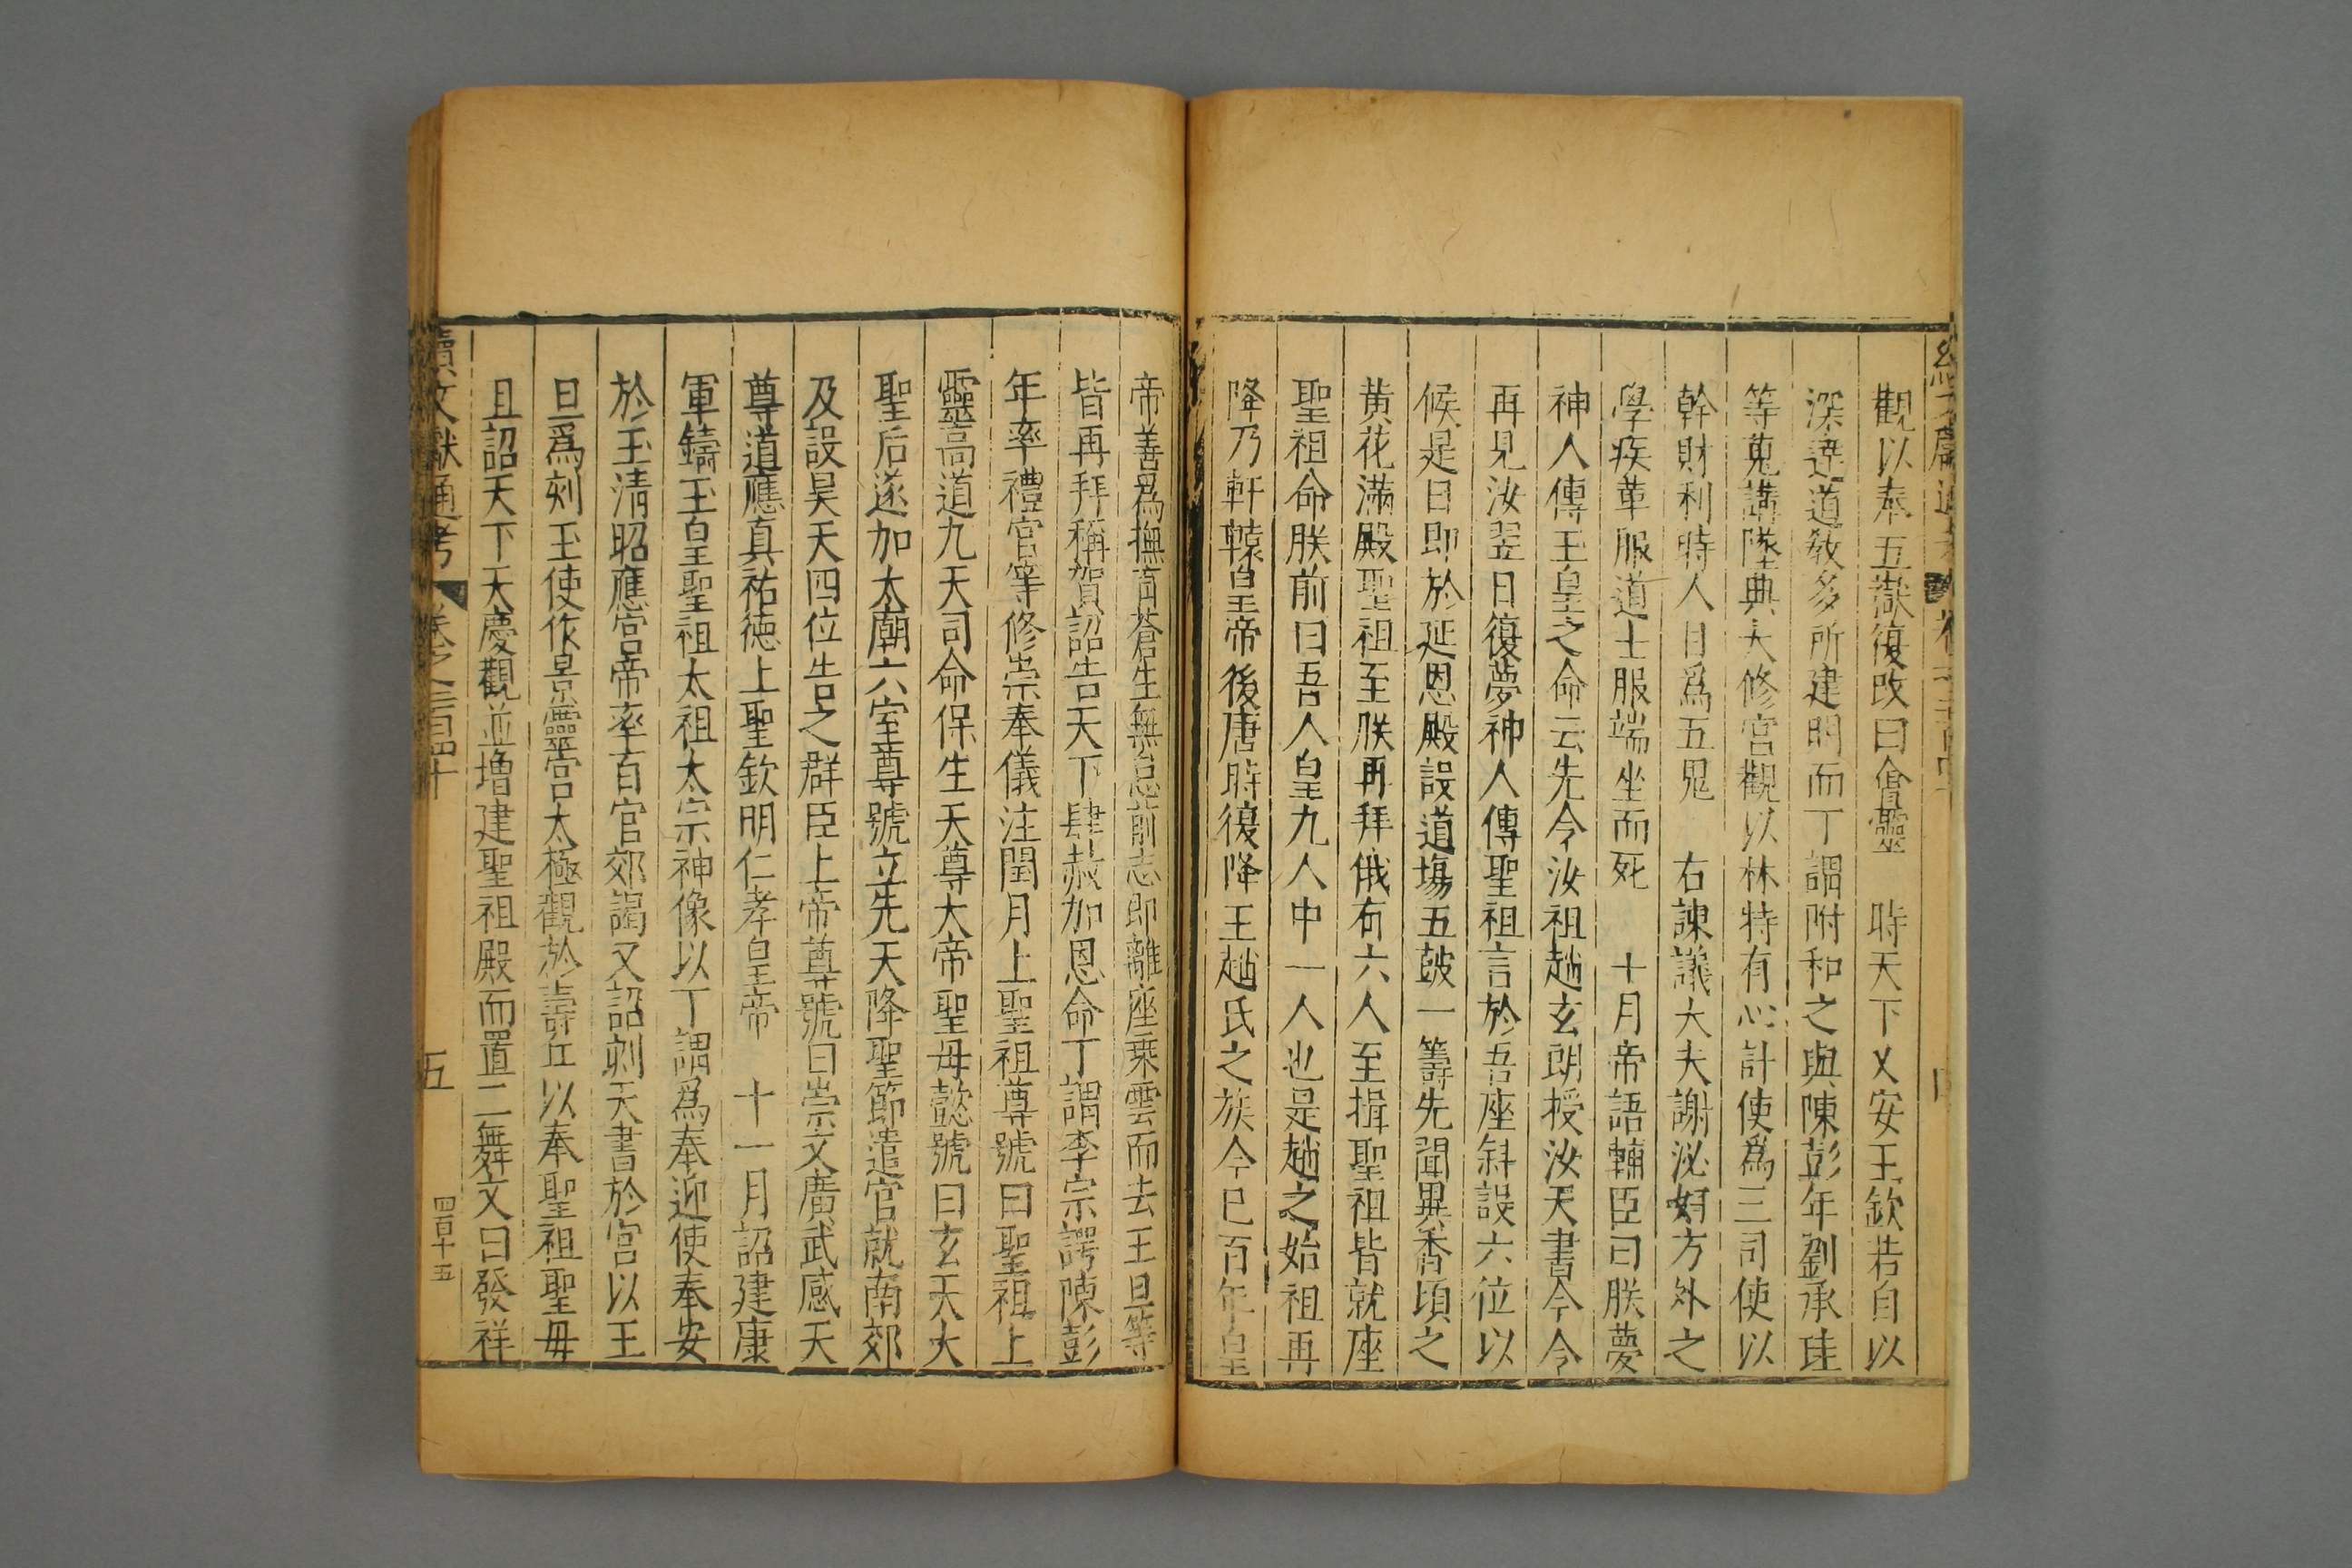 觀以奉五嶽復改曰會靈　時天下乂安王欽若自以
深達道教多所建明而丁謂附和之與陳彭年劉承珪
等蒐講墜典大修宮觀以林特有心計使爲三司使以
幹財利時人目爲五鬼　右諫議大夫謝泌好方外之
學疾革服道士服端坐而死　十月帝語輔臣曰朕夢
神人傳玉皇之命云先令汝祖趙玄朗授汝天書今令
再見汝翌日復夢神人傳聖祖言於吾座斜設六位以
候是日即於延恩殿設道塲五鼓一籌先聞異香頃之
黃花滿殿聖祖至朕再拜俄有六人至揖聖祖皆就座
聖祖命朕前曰吾人皇九人中一人也是趙之始祖再
降乃軒轅皇帝後唐時復降王趙氏之族今已百年皇
帝善爲撫育蒼生無怠前志即離座乘雲而去王旦等
皆再拜稱賀詔告天下肆赦加恩命丁謂李宗諤陳彭
年率禮官等修崇奉儀注閏月上聖祖尊號曰聖祖上
靈高道九天司命保生天尊大帝聖母懿號曰玄天大
聖后遂加太廟六室尊號立先天降聖節遣官就南郊
及設昊天四位告之群臣上帝尊號曰崇文廣武感天
尊道應真祐德上聖欽明仁孝皇帝　十一月詔建康
軍鑄玉皇聖祖太祖太宗神像以丁謂爲奉迎使奉安
於玉清昭應宮帝率百官郊謁又詔刻天書於宮以王
旦爲刻玉使作景靈宮太極觀於壽丘以奉聖祖聖母
且詔天下天慶觀並增建聖祖殿而置二舞文曰發祥
續文獻通考　卷之二百四十　五　四百十五